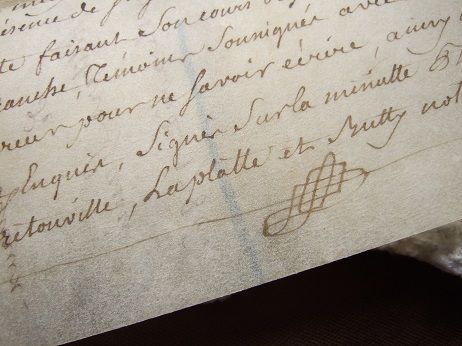 te faisant son cours
anche, temoins soussignés avec
pour ne savoir écrire, ainsy
Enquis, signés sur la minutte
retonville, Laplatte et Rutty not